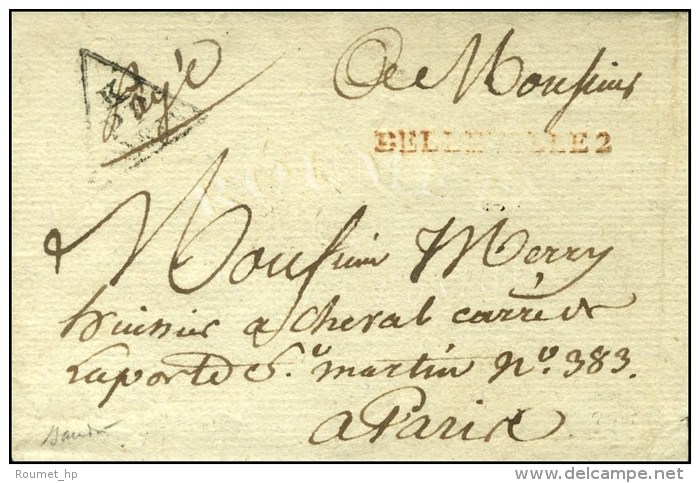 payé
A Monsieur
BELLEVILLE 2
Monsieur Merry
huissier a cheval carré de
la porte St. martin No. 383.
a Paris
Roumet_hp
www.delcampe.net